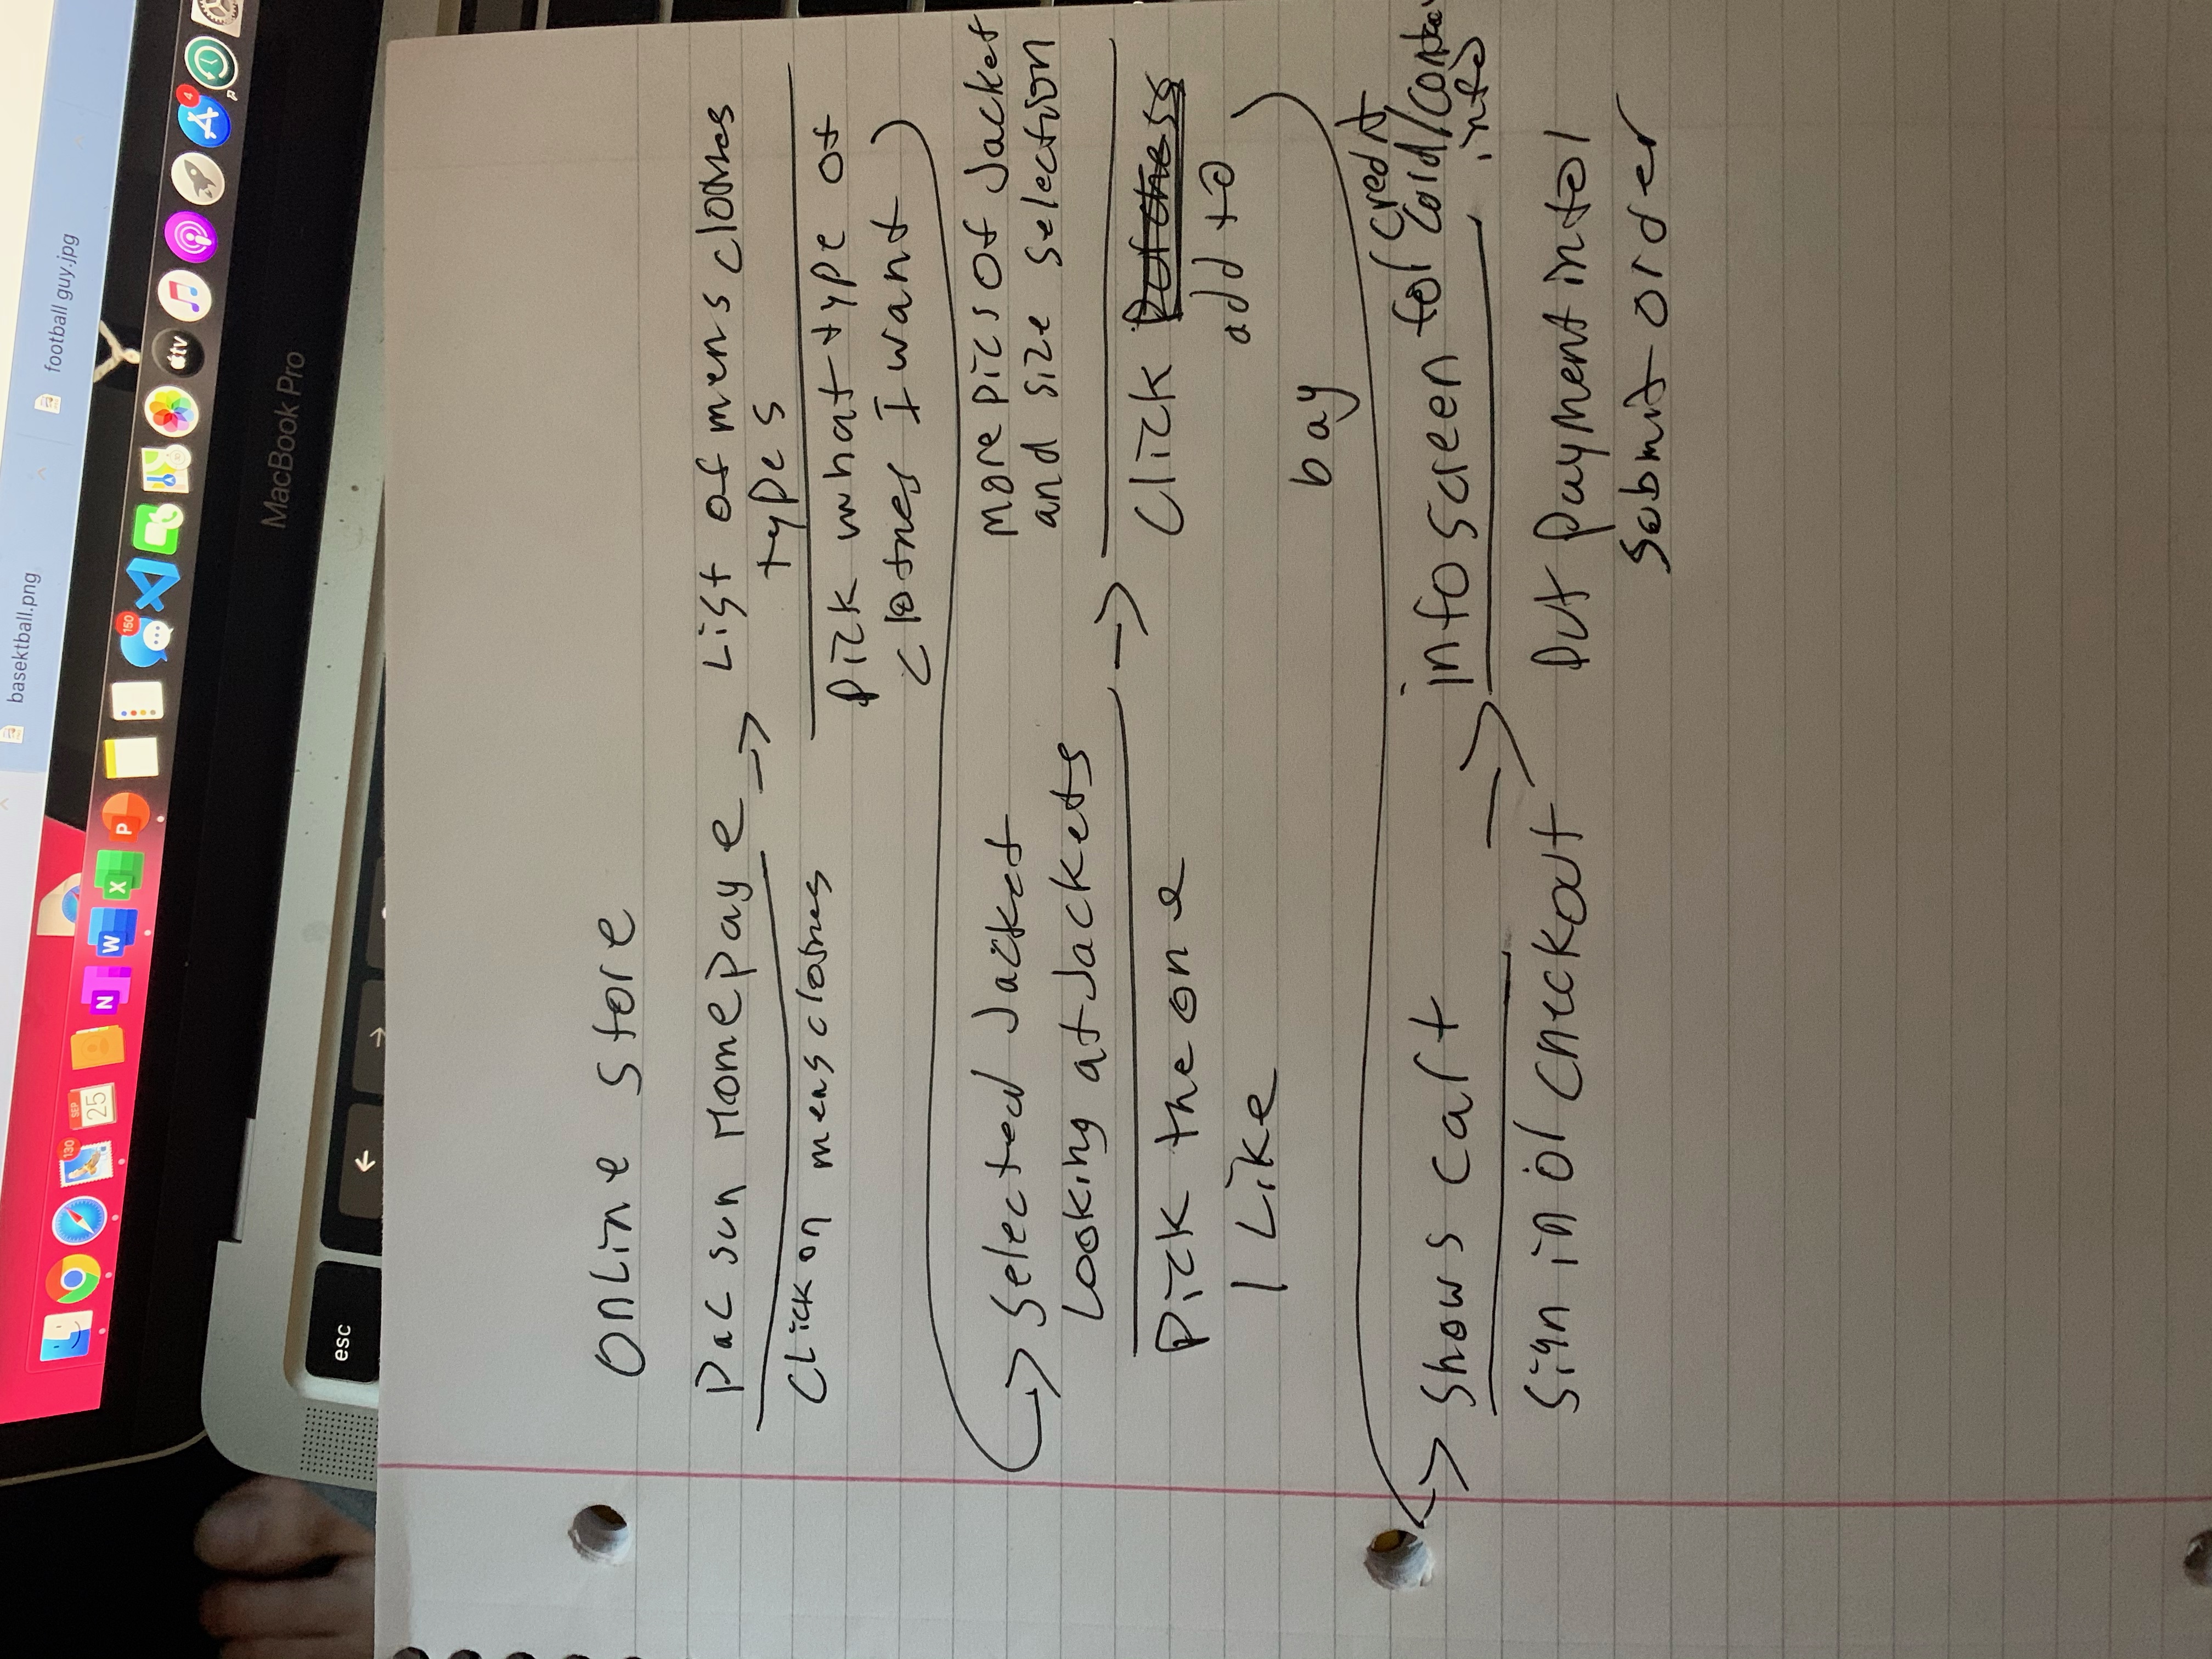 basektball.png
football guy.jpg
130
SEP
25
N
W
X
P
150
tv
4
MacBook Pro
esc
Online Store
Pac sun Homepage
Click on mens clothes
List of mens clothes
types
Pick what type of
clothes I want
Selected Jacket
Looking at Jackets
Pick the one
I Like
more pics of Jacket
and size selection
Click
add to
bag
Shows cart
Sign in or checkout
info screen for credit
card/contac
info
Put payment info/
submit order